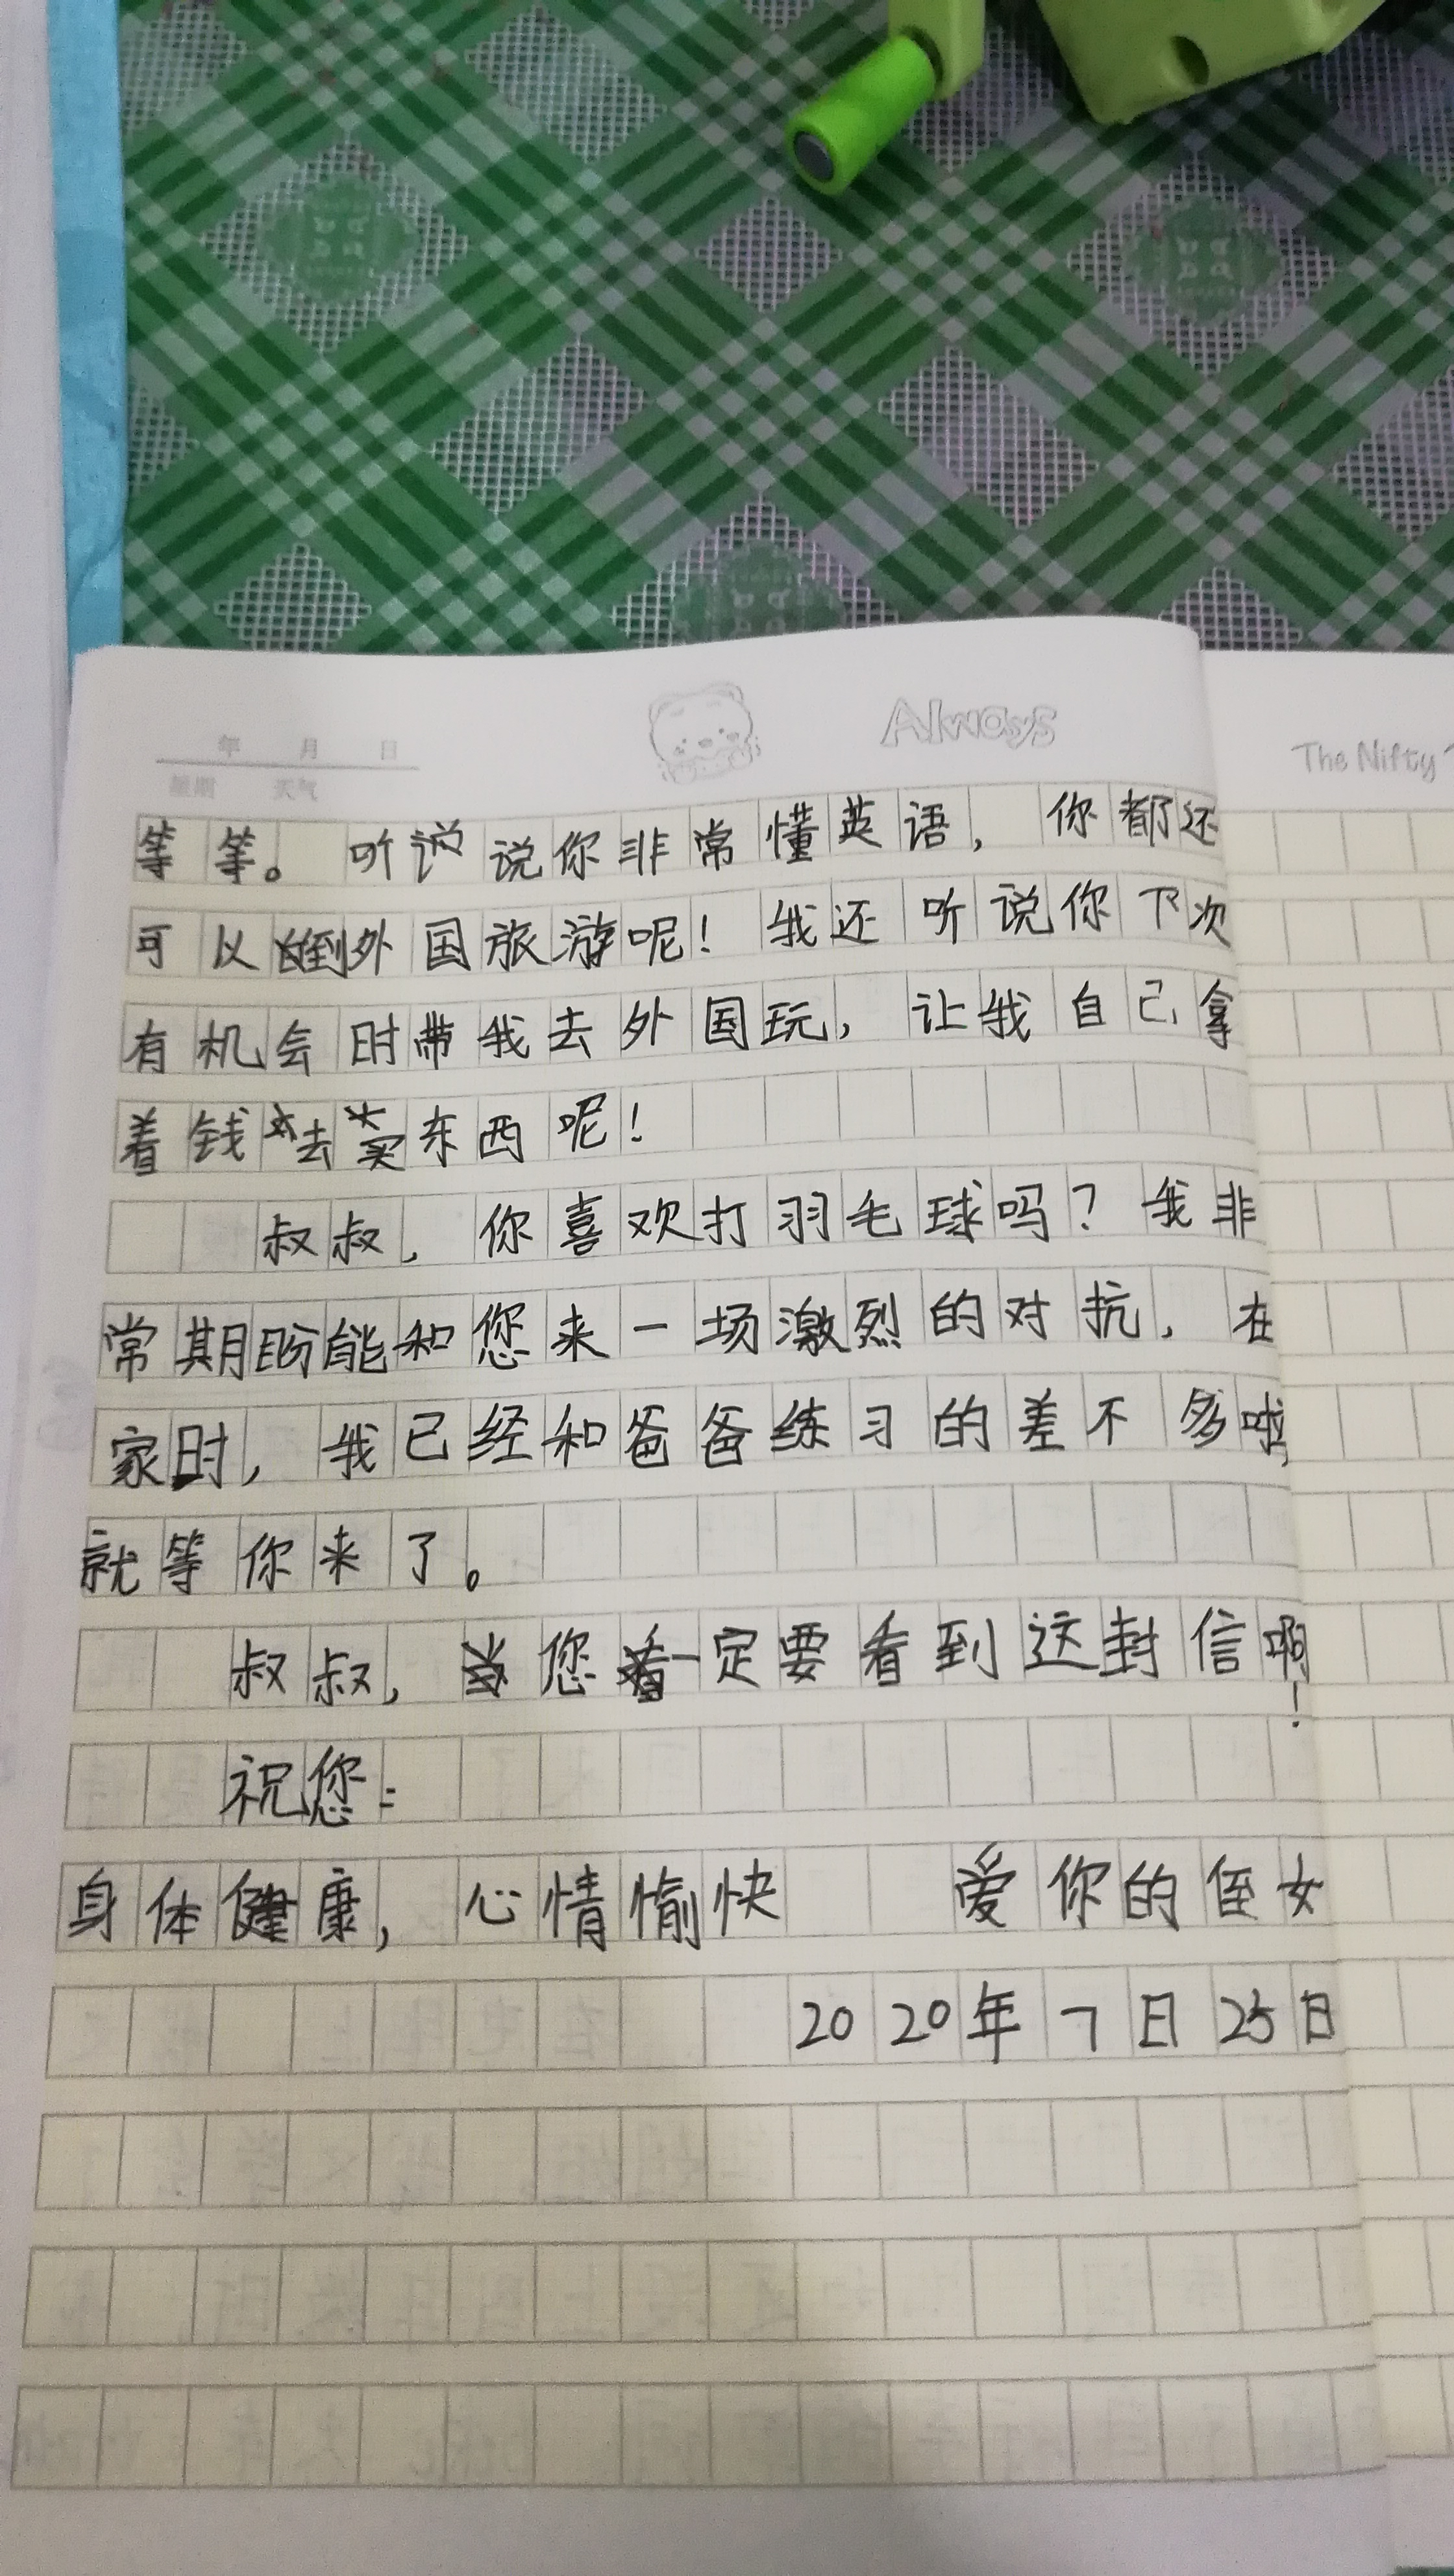 年 月 日
星期 天气
Always
The Nifty
等等。听说说你非常懂英语，你都还
可以到外国旅游呢！我还听说你下次
有机会时带我去外国玩，让我自己拿
着钱去买东西呢！
叔叔，你喜欢打羽毛球吗？我非
常期盼能和您来一场激烈的对抗，在
家时，我已经和爸爸练习的差不多啦，
就等你来了。
叔叔，您一定要看到这封信啊！
祝您：
身体健康，心情愉快 爱你的侄女
2020年7日25日